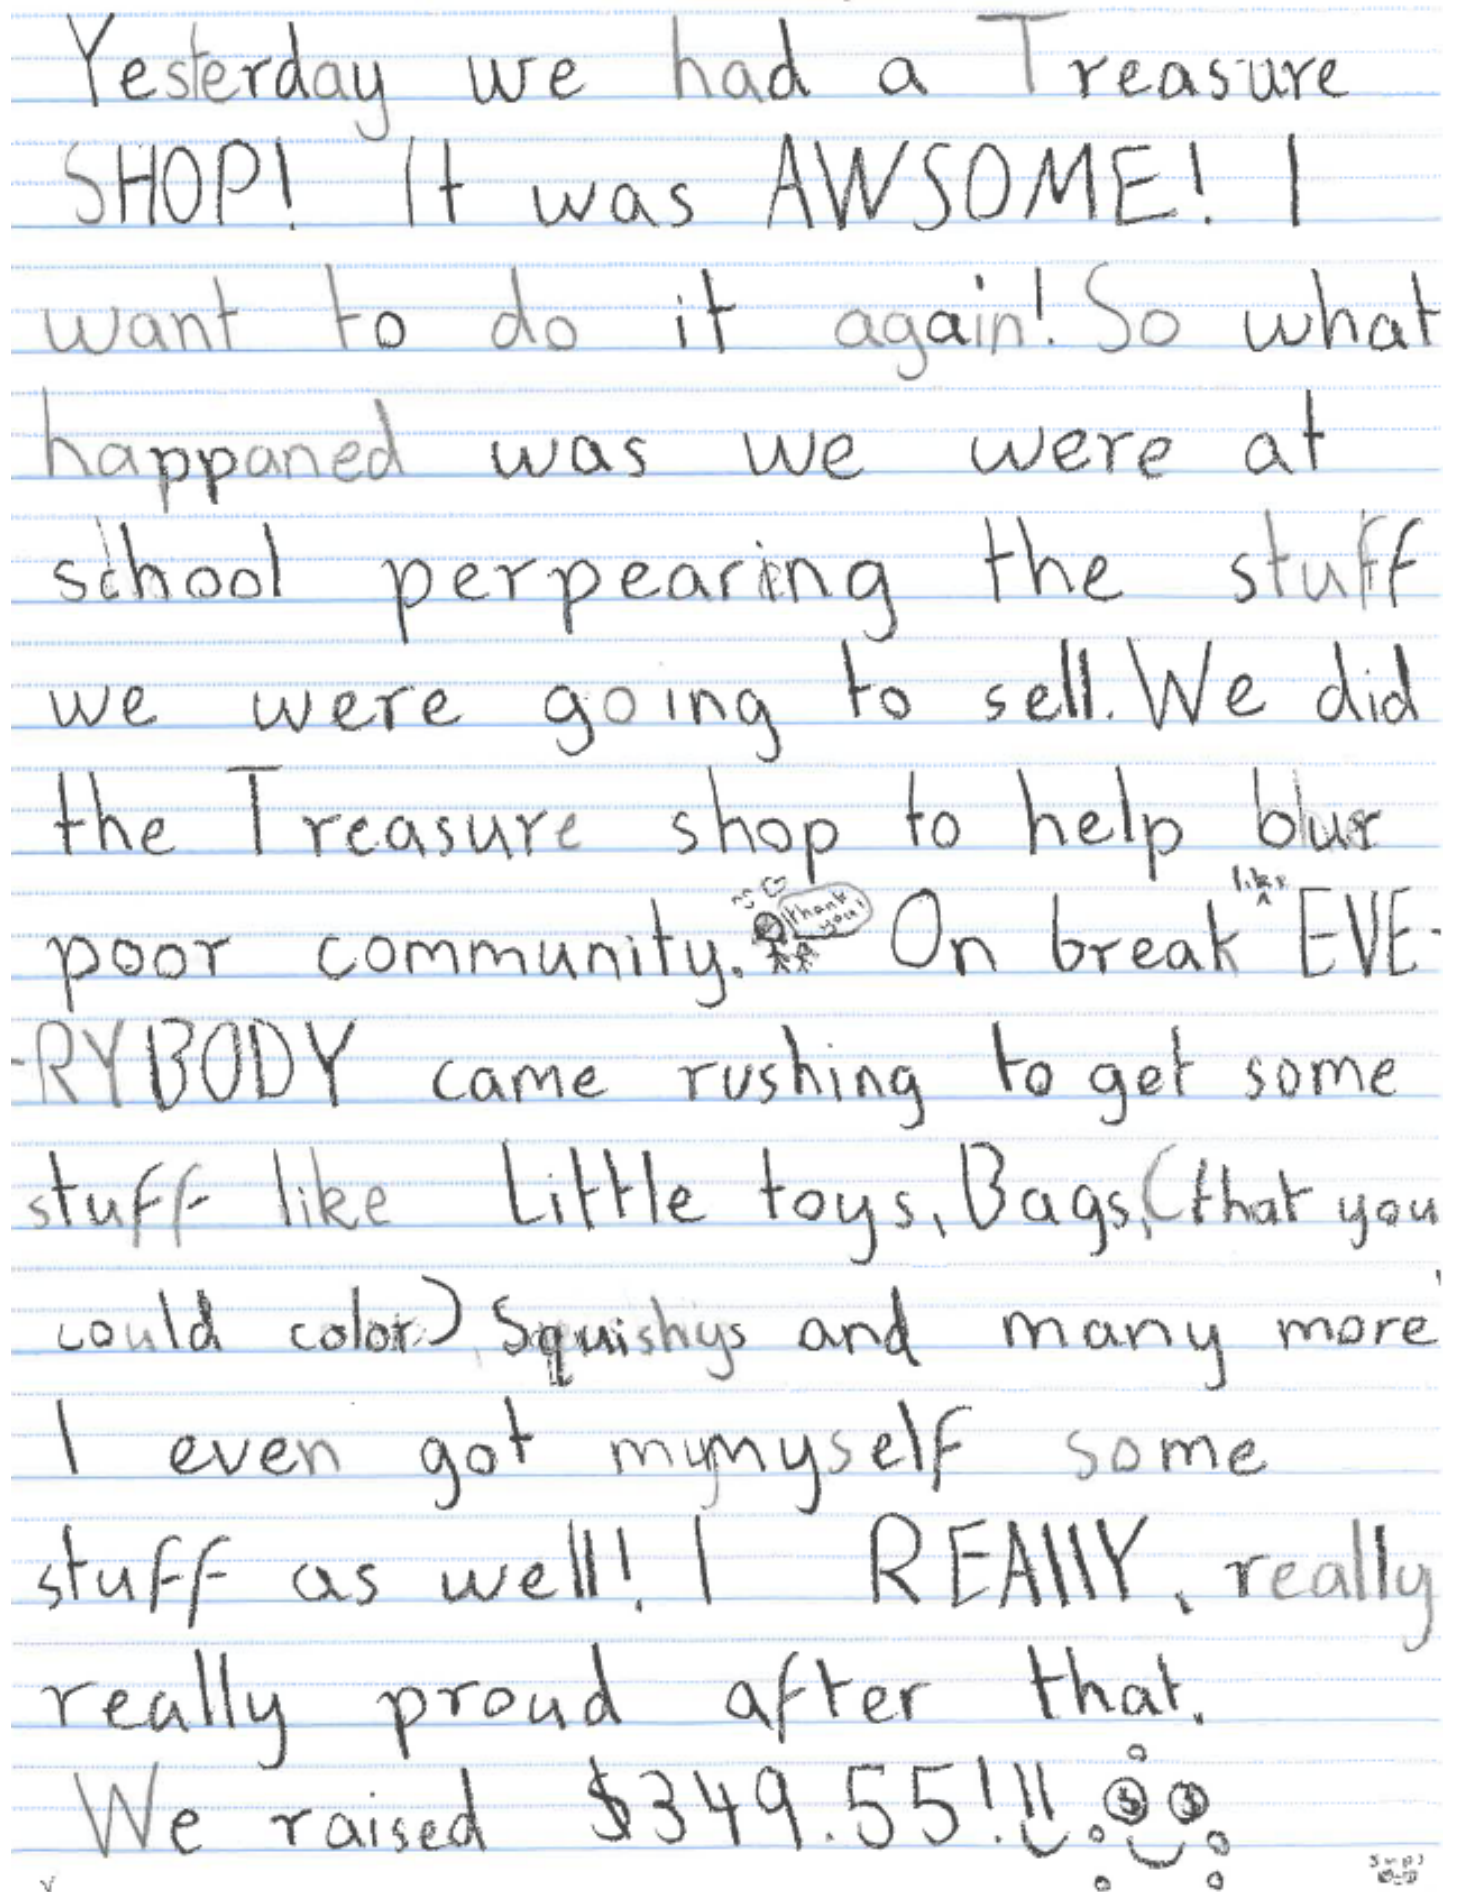 Yesterday we had a Treasure
SHOP! It was AWSOME! I
want to do it again! So what
happaned was we were at
school perpearing the stuff
we were going to sell. We did
the Treasure shop to help
poor community. thank you! On break like EVE-
-RYBODY came rushing to get some
stuff like Little toys, Bags, (that you
could color), Squishys and many more
I even got mymyself some
stuff as well! I REAllY, really
really proud after that.
We raised $349.55!!!